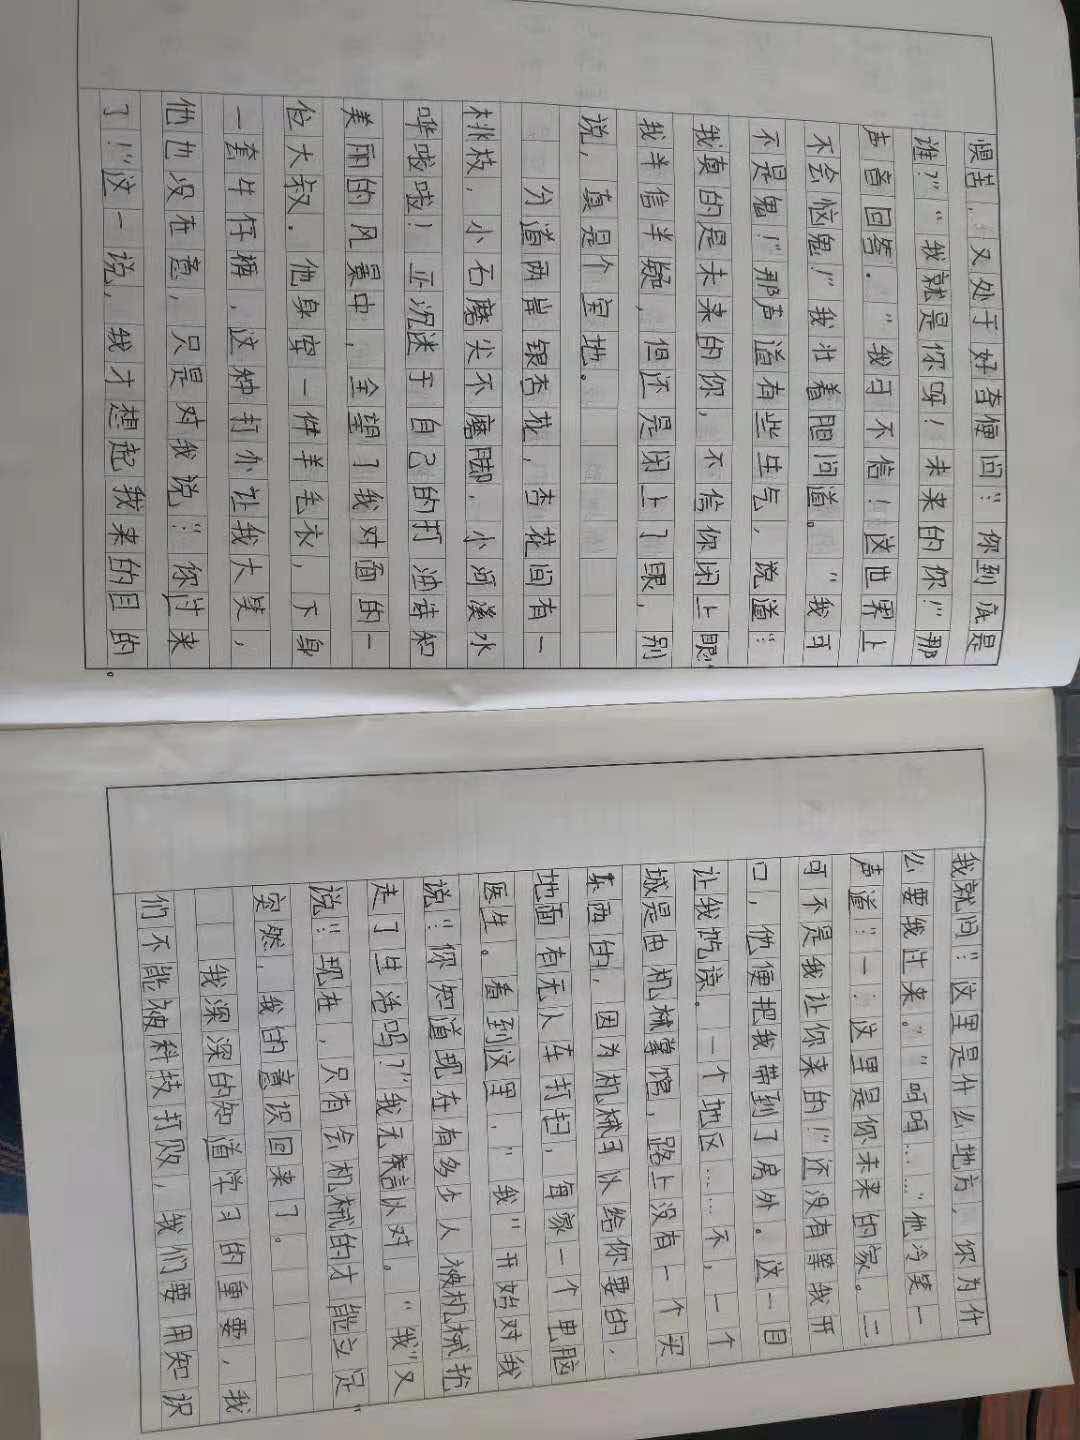 惧苦，又处于好奇便问：“你到底是
谁？”“我就是你呀！未来的你！”那
声音回答。“我可不信！这世界上
不会恼鬼！”我壮着胆问道。“我可
不是鬼！”那声道有些生气，说道：“
我真的是未来的你，不信你闭上眼”
我半信半疑，但还是闭上了眼，别
说，真是个宝地。
分道两岸银杏花，杏花间有一
桃枝，小石磨尖不磨脚，小河溪水
哗啦啦！正沉迷于自己的打油诗和
美丽的风景中，全望了我对面的一
位大叔．他身穿一件羊毛衣，下身
一套牛仔裤，这种打办让我大吴，
他也没在意，只是对我说：“你过来
了！”这一说，我才想起我来的目的。
我就问：“这里是什么地方，你为什
么要我过来。”“呵呵……”他冷笑一
声道：“一：这里是你未来的家。二
可不是我让你来的！”还没有等我开
口，他便把我带到了房外。这一目
让我吃谅。一个地区……不，一个
城是由机械掌馆，路上没有一个买
东西的，因为机械可以给你要的，
地面有无人车打扫，每家一个电脑
医生。看到这里，“我”开始对我
说：“你知道现在有多少人被机械抢
走了生活吗？”我无言以对。“我”又
说：“现在，只有会机械的才能立足”
突然，我的意识回来了。
我深深的知道学习的重要，我
们不能被科技打败，我们要用知识